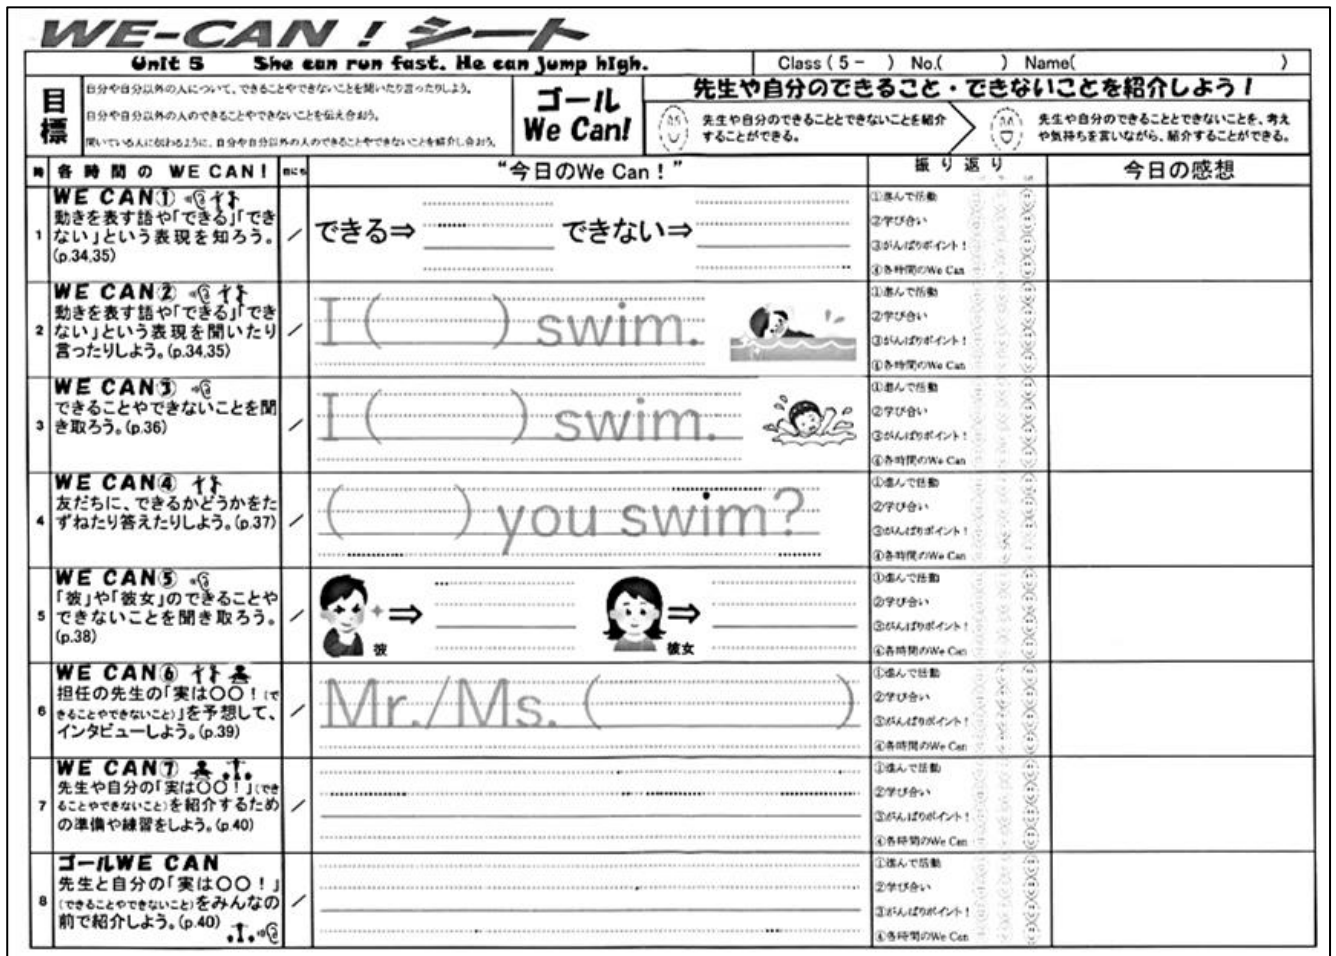 WE-CAN！シート
Unit 5 She can run fast. He can jump high.
Class ( 5 - ) No.( ) Name( )
目標
自分や自分以外の人について、できることやできないことを聞いたり言ったりしよう。
自分や自分以外の人のできることやできないことを伝え合おう。
聞いている人に伝わるように、自分や自分以外の人のできることやできないことを紹介し合おう。
ゴール
We Can!
先生や自分のできること・できないことを紹介しよう！
先生や自分のできることとできないことを紹介
することができる。
先生や自分のできることとできないことを、考え
や気持ちを言いながら、紹介することができる。
時
各時間の WE CAN!
日にち
“今日のWe Can！”
振り返り
今日の感想
1
WE CAN①
動きを表す語や「できる」「でき
ない」という表現を知ろう。
(p.34,35)
/
できる⇒
できない⇒
①進んで活動
②学び合い
③がんばりポイント！
④各時間のWe Can
2
WE CAN②
動きを表す語や「できる」「でき
ない」という表現を聞いたり
言ったりしよう。(p.34,35)
/
I ( ) swim.
①進んで活動
②学び合い
③がんばりポイント！
④各時間のWe Can
3
WE CAN③
できることやできないことを聞
き取ろう。(p.36)
/
I ( ) swim.
①進んで活動
②学び合い
③がんばりポイント！
④各時間のWe Can
4
WE CAN④
友だちに、できるかどうかをた
ずねたり答えたりしよう。(p.37)
/
( ) you swim?
①進んで活動
②学び合い
③がんばりポイント！
④各時間のWe Can
5
WE CAN⑤
「彼」や「彼女」のできることや
できないことを聞き取ろう。
(p.38)
/
⇒
彼
⇒
彼女
①進んで活動
②学び合い
③がんばりポイント！
④各時間のWe Can
6
WE CAN⑥
担任の先生の「実は〇〇！(で
きることやできないこと)」を予想して、
インタビューしよう。(p.39)
/
Mr./Ms. ( )
①進んで活動
②学び合い
③がんばりポイント！
④各時間のWe Can
7
WE CAN⑦
先生や自分の「実は〇〇！」(でき
ることやできないこと)を紹介するため
の準備や練習をしよう。(p.40)
/
①進んで活動
②学び合い
③がんばりポイント！
④各時間のWe Can
8
ゴールWE CAN
先生と自分の「実は〇〇！」
(できることやできないこと)をみんなの
前で紹介しよう。(p.40)
/
①進んで活動
②学び合い
③がんばりポイント！
④各時間のWe Can